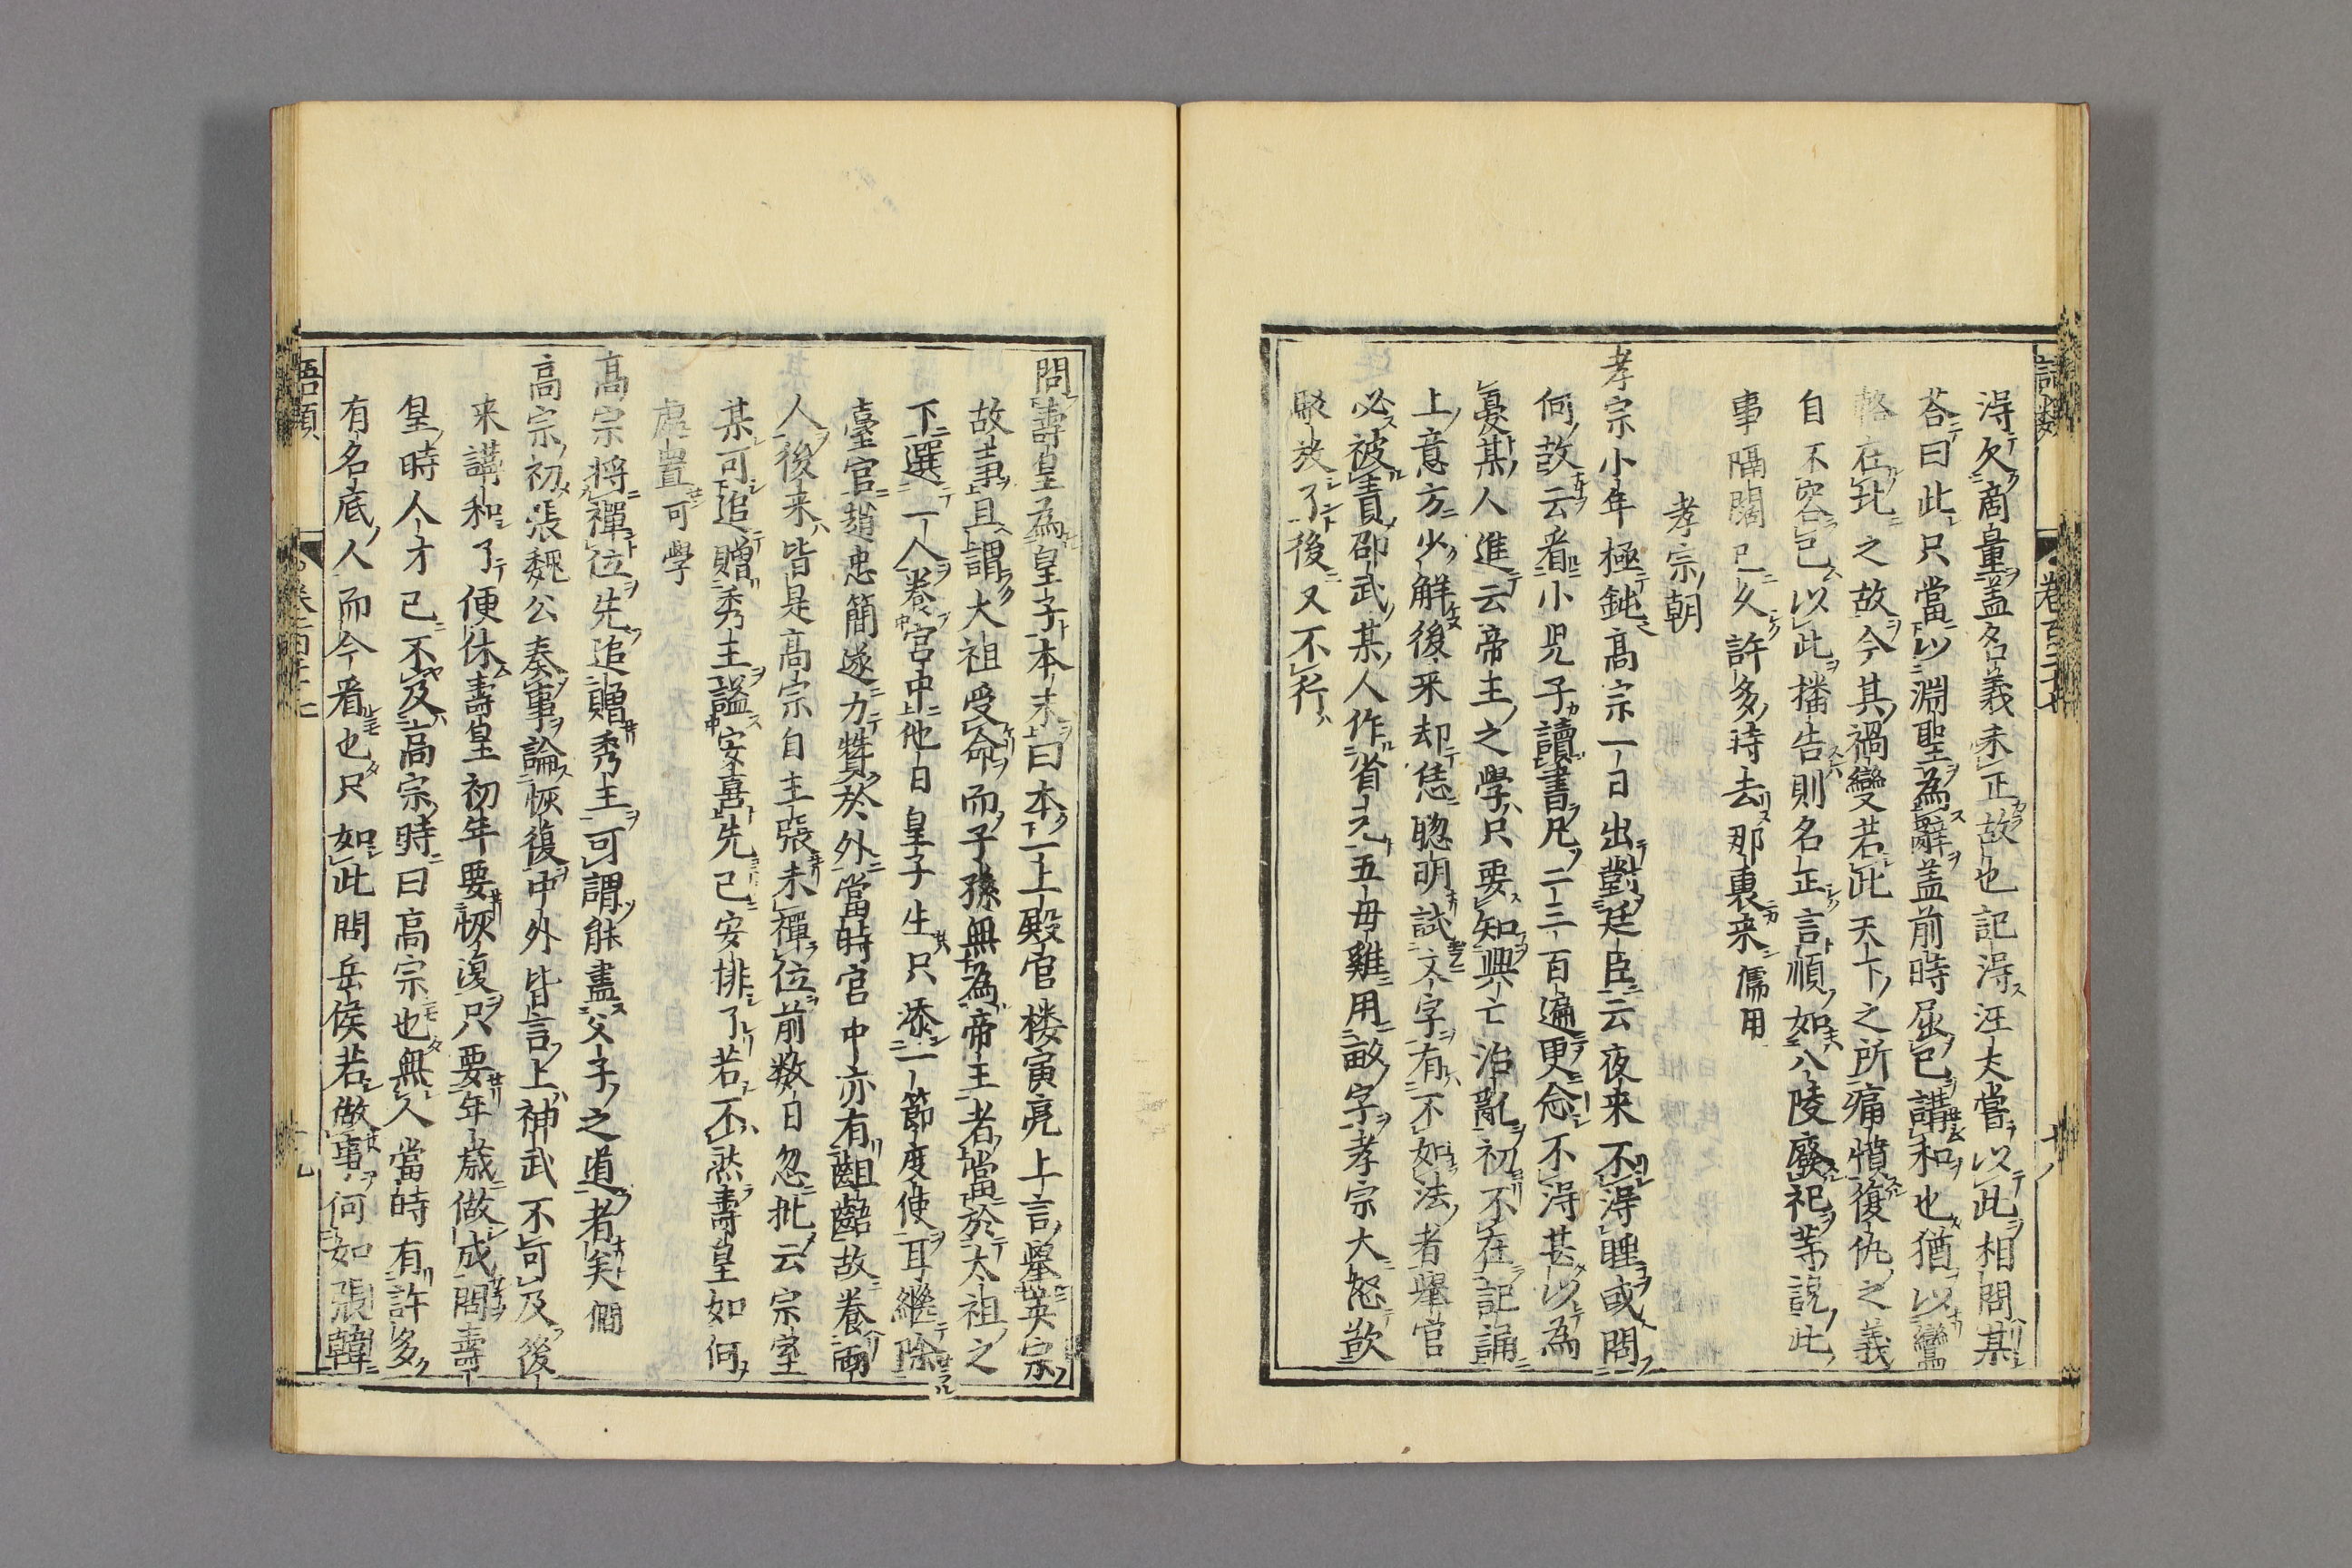 得欠商量盖名義未正故也記得汪丈嘗以此相問某
荅曰此只當以淵聖為辭盖前時屈已講和也猶以鸞
輅在此之故今其禍變若此天下之所痛憤復仇之義
自不容已以此播告則名正言順如八陵廢祀等說此
事隔闊已久許多時去那裏来 儒用
孝宗朝
孝宗小年極鈍高宗一日出對廷臣云夜来不得睡或問
何故云看小児子讀書凡二三百遍更念不得甚以為
憂某人進云帝王之學只要知興亡治亂初不在記誦
上意方少解後来却恁聰明試文字有不如法者舉官
必被責邵武某人作省元五母雞用畝字孝宗大怒欲
駁放了後又不行
問壽皇為皇子本末曰本一上殿官楼寅亮上言舉英宗
故事且謂大祖受命而子孫無為帝王者當於太祖之
下選一人養宮中他日皇子生只添一節度使耳繼除
臺官趙忠簡遂力贊於外當時官中亦有齟齬故養兩
人後来皆是高宗自主張未禪位前数日忽批云宗室
某可追贈秀王謚安喜先已安排了若不然壽皇如何
處置 可學
高宗將禪位先追贈秀王可謂能盡父子之道者矣 僩
高宗初張魏公奏事論恢復中外皆言上神武不可及後
来講和了便休壽皇初年要恢復只要年歲做成問壽
皇時人才已不及高宗時曰高宗也無人當時有許多
有名底人而今看也只如此問岳侯若做事何如張韓
語類
卷百二十七
十八
語類
卷百二十七
十九